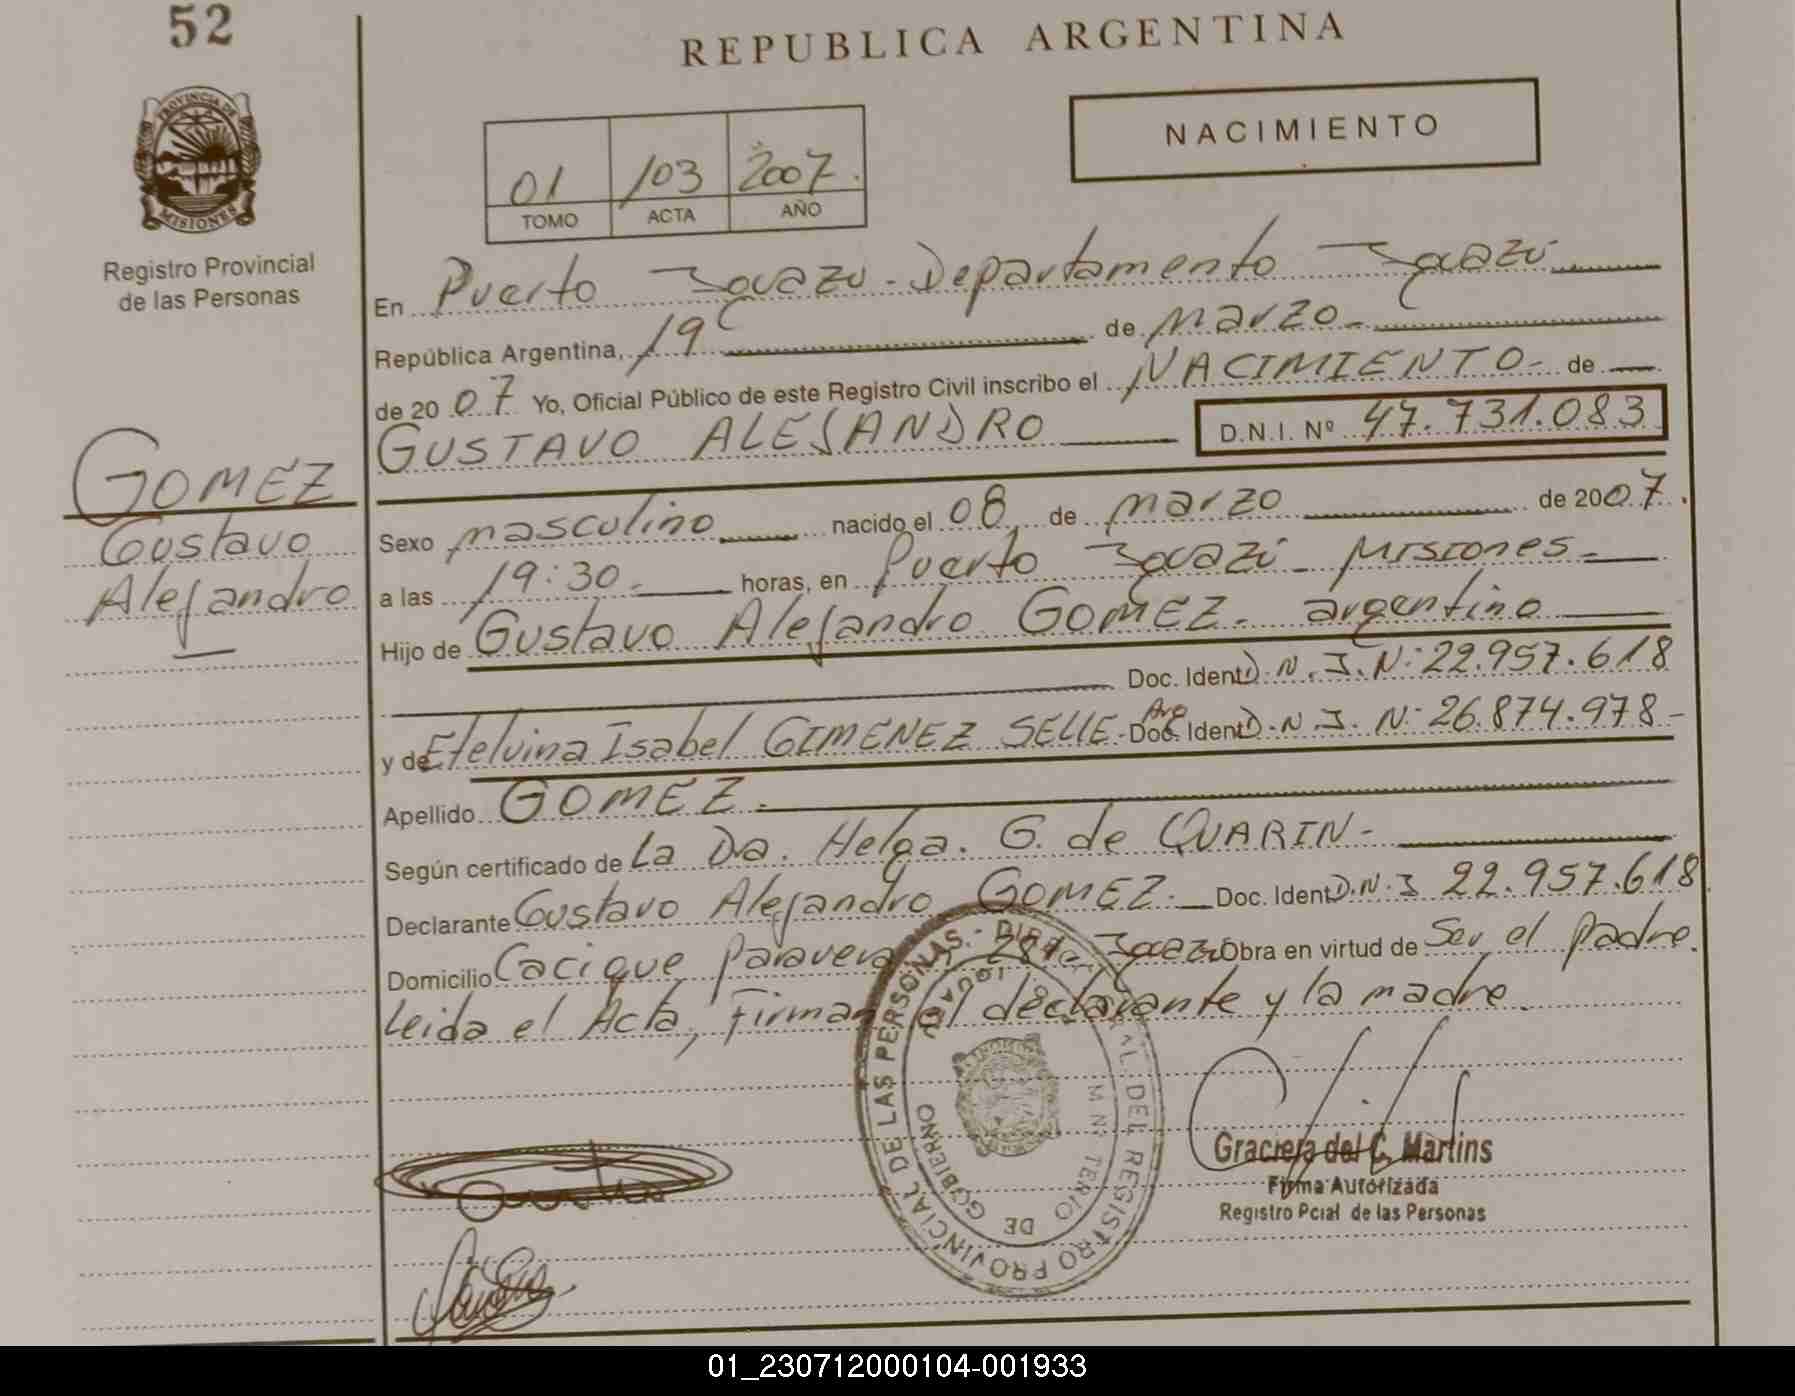 52
REPUBLICA ARGENTINA
PROVINCIA DE
MISIONES
Registro Provincial
de las Personas
NACIMIENTO
01 103 2007.
TOMO ACTA AÑO
En Puerto Iguazú - Departamento Iguazú
República Argentina, 19 de marzo -
de 2007 Yo, Oficial Público de este Registro Civil inscribo el NACIMIENTO - de
GUSTAVO ALEJANDRO D.N.I. Nº 47.731.083
GOMEZ
Gustavo
Alejandro
Sexo masculino nacido el 08 de marzo de 2007.
a las 19:30 - horas, en Puerto Iguazú - Misiones -
Hijo de Gustavo Alejandro GOMEZ - argentino
Doc. Ident D.N.I. N: 22.957.618
y de Etelvina Isabel GIMENEZ SELLE - Arg Doc. Ident D.N.I. N: 26.874.978 -
Apellido GOMEZ -
Según certificado de La Dra. Helga. G. de QUARIN -
Declarante Gustavo Alejandro GOMEZ - Doc. Ident D.N.I 22.957.618
Domicilio Cacique Iguazú Obra en virtud de Ser el padre.
Leida el Acta, Firman el declarante y la madre.
REGISTRO PROVINCIAL DE LAS PERSONAS
DE GOBIERNO
IGUAZU
Graciela del C. Martins
Firma Autorizada
Registro Pcial de las Personas
01_230712000104-001933